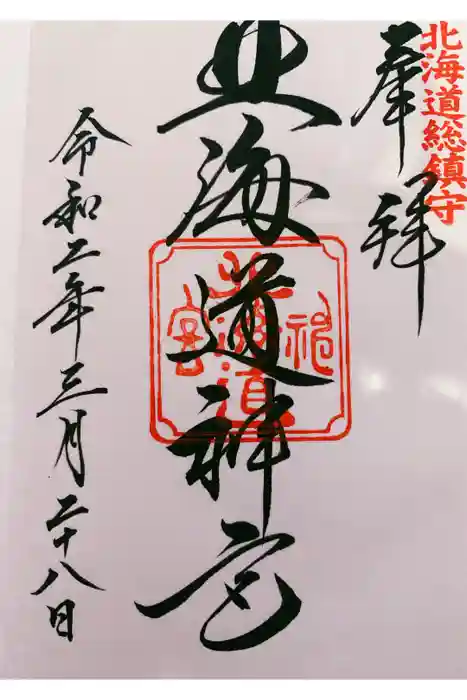 北海道総鎮守
奉拝
北海道神宮
北海道神宮
令和二年三月二十八日